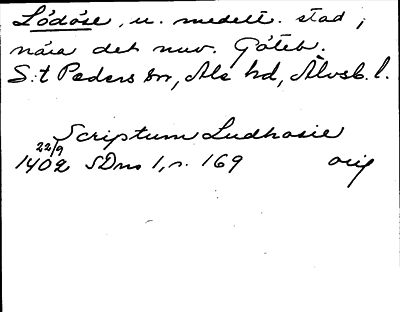 Lödöse, u. medelt. stad i
nära det nuv. Göteb.
S:t Peders sn, Ale hd, Älvsb. l.
Scriptum Ludhosie
22/9
1402 SDns 1, n. 169 orig